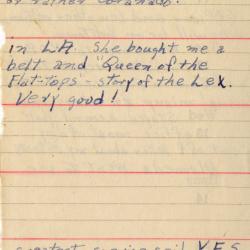 in LA. She bought me a
belt and "Queen of the
Flat-tops" - story of the Lex.
Very good!
YES